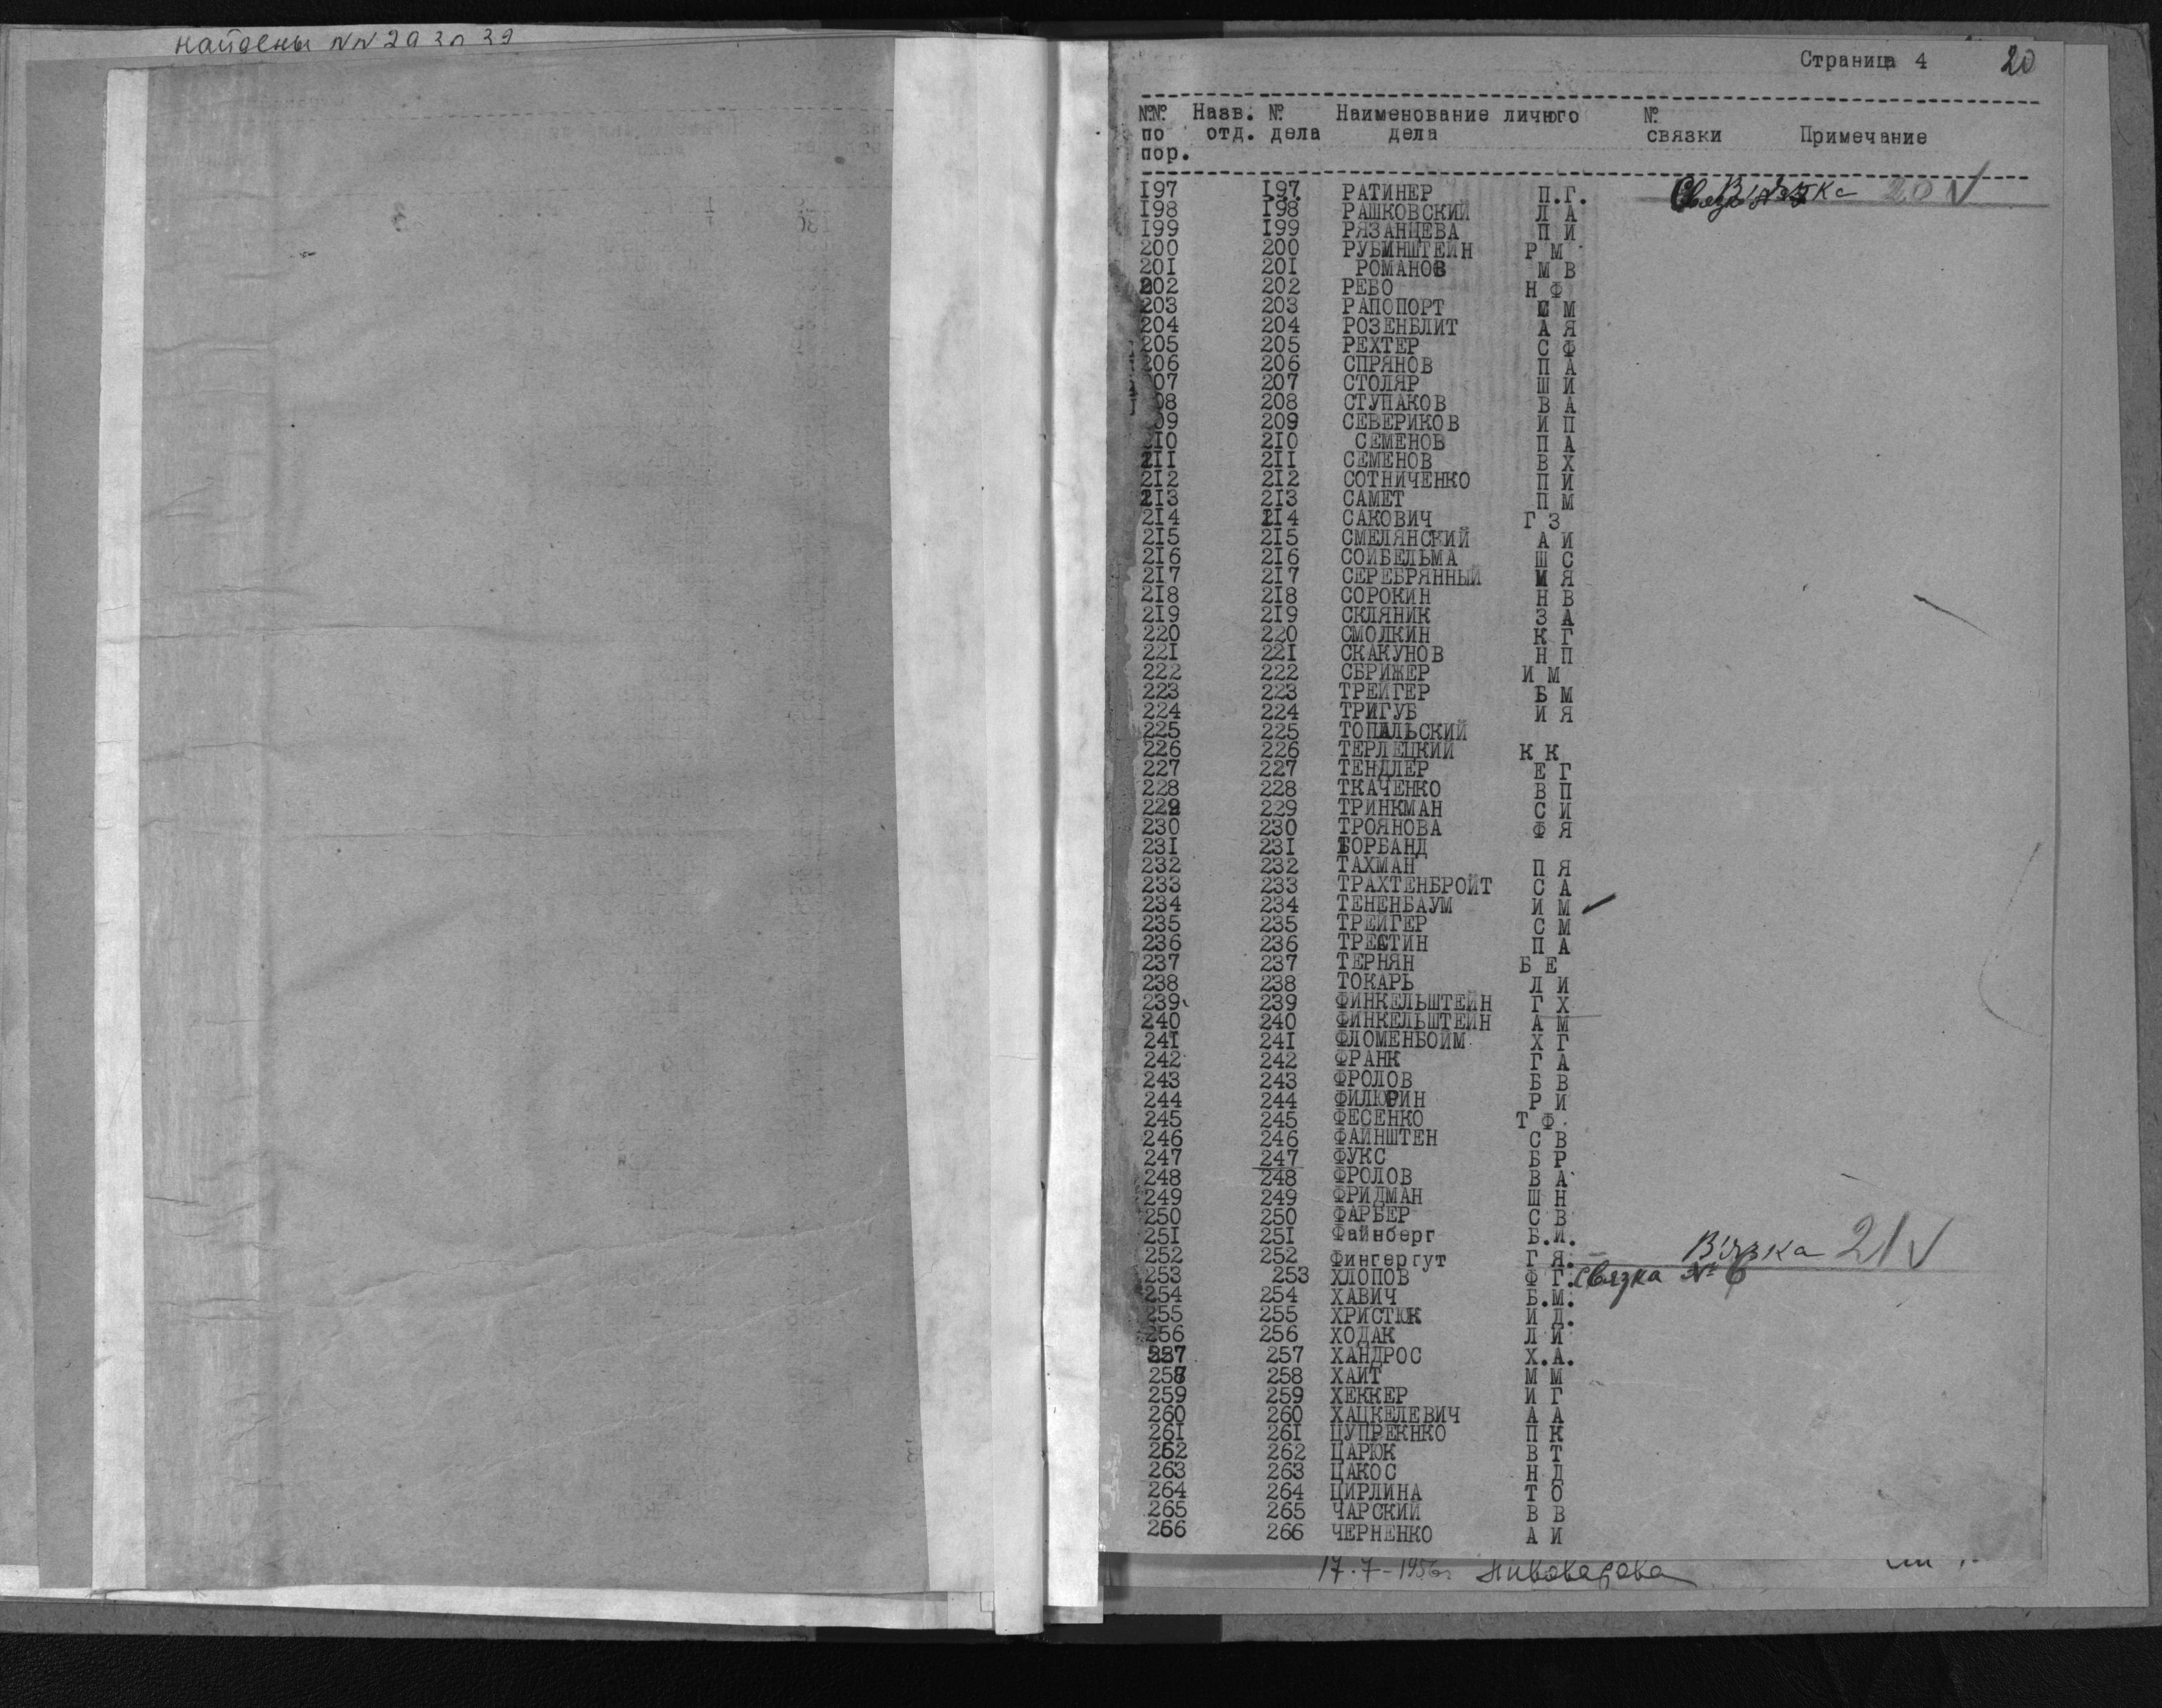 найдены NN 29
Страница 4 20
№№ Назв. № Наименование личного №
по отд. дела дела связки Примечание
пор.
I97 I97 РАТИНЕР П.Г. В'язка 20 V
I98 I98 РАШКОВСКИЙ Л А
I99 I99 РЯЗАНЦЕВА П И
200 200 РУБИНШТЕЙН Р М
20I 20I РОМАНОВ М В
202 202 РЕВО Н Ф
203 203 РАПОПОРТ М
204 204 РОЗЕНБЛИТ А Я
205 205 РЕХТЕР С Ф
206 206 СПРЯНОВ П А
207 207 СТОЛЯР Ш И
08 208 СТУПАКОВ В А
09 209 СЕВЕРИКОВ И П
2I0 2I0 СЕМЕНОВ П А
2II 2II СЕМЕНОВ В Х
2I2 2I2 СОТНИЧЕНКО П И
2I3 2I3 САМЕТ П М
2I4 2I4 САКОВИЧ Г З
2I5 2I5 СМЕЛЯНСКИЙ А И
2I6 2I6 СОЙБЕЛЬМА Ш С
2I7 2I7 СЕРЕБРЯННЫЙ М Я
2I8 2I8 СОРОКИН Н В
2I9 2I9 СКЛЯНИК З А
220 220 СМОЛКИН К Г
22I 22I СКАКУНОВ Н П
222 222 СБРИЖЕР И М
223 223 ТРЕЙГЕР Б М
224 224 ТРИГУБ И Я
225 225 ТОПАЛЬСКИЙ
226 226 ТЕРЛЕЦКИЙ К К
227 227 ТЕНДЛЕР Е Г
228 228 ТКАЧЕНКО В П
229 229 ТРИНКМАН С И
230 230 ТРОЯНОВА Ф Я
23I 23I ТОРБАНД
232 232 ТАХМАН П Я
233 233 ТРАХТЕНБРОЙТ С А
234 234 ТЕНЕНБАУМ И М ✓
235 235 ТРЕЙГЕР С М
236 236 ТРЕСТИН П А
237 237 ТЕРНЯН Б Е
238 238 ТОКАРЬ Л И
239 239 ФИНКЕЛЬШТЕЙН Г Х
240 240 ФИНКЕЛЬШТЕЙН А М
24I 24I ФЛОМЕНБОЙМ Х Г
242 242 ФРАНК Г А
243 243 ФРОЛОВ Б В
244 244 ФИЛЮРИН Р И
245 245 ФЕСЕНКО Т Ф
246 246 ФАЙНШТЕН С В
247 247 ФУКС Б Р
248 248 ФРОЛОВ В А
249 249 ФРИДМАН Ш Н
250 250 ФАРБЕР С В
25I 25I Файнберг Б.И.
252 252 Фингергут Г Я. В'язка 21 V
253 253 ХЛОПОВ Ф Г. связка № 6
254 254 ХАВИЧ Б.М.
255 255 ХРИСТЮК И Д.
256 256 ХОДАК Л И
257 257 ХАНДРОС Х.А.
258 258 ХАИТ М М
259 259 ХЕККЕР И Г
260 260 ХАЦКЕЛЕВИЧ А А
26I 26I ЦУПРЕКНКО П К
262 262 ЦАРЮК В Т
263 263 ЦАКОС Н Д
264 264 ЦИРЛИНА Т О
265 265 ЧАРСКИЙ В В
266 266 ЧЕРНЕНКО А И
17.7-1956г. Пивоварова